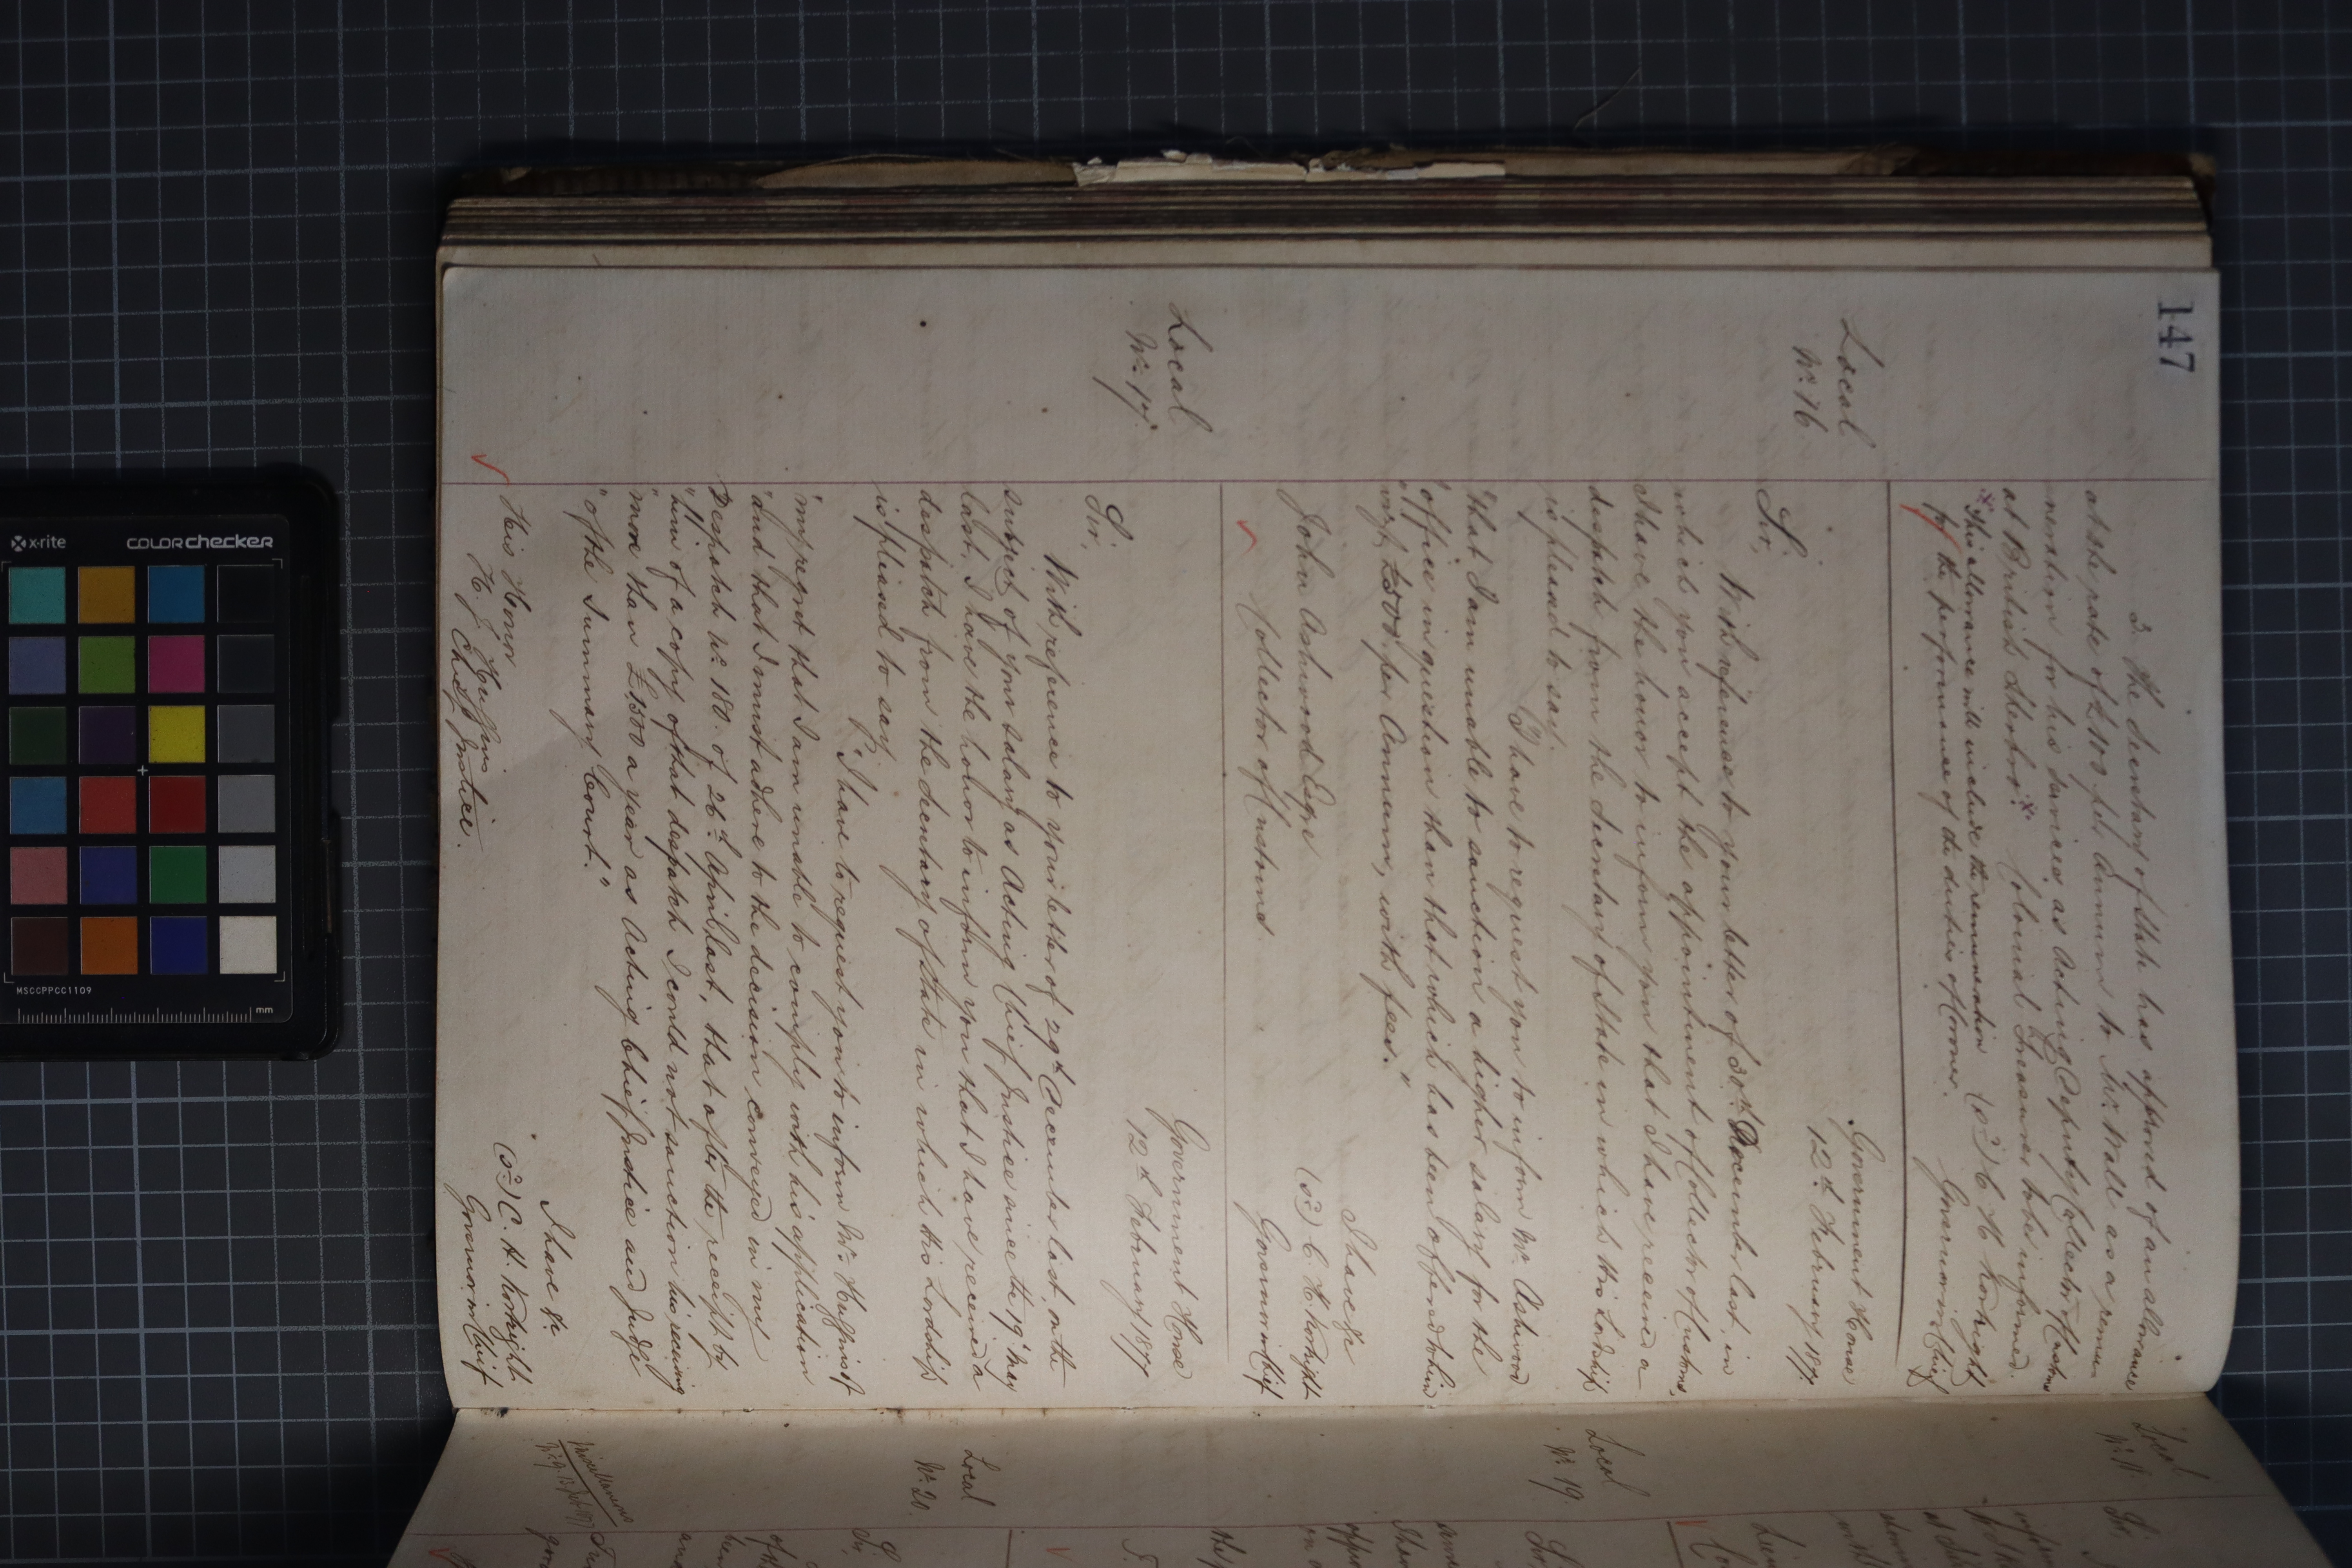 147
3. The Secretary of State has approved of an allowance
at the rate of £100 per Annum to Mr. Wall as a remu-
neration for his services as Acting Deputy Collector of Customs
at British Sherbro.* Colonial Treasurer to be informed.
*This allowance will include the remuneration
for the performance of the duties of Coroner.
(sd) C. H. Kortright
Governor in Chief
Local
No. 16
Government House
12th February 1877
Sir,
With reference to your letter of 30th December last, in
which you accept the appointment of Collector of Customs,
I have the honor to inform you that I have received a
despatch from the Secretary of State in which His Lordship
is pleased to say.
"I have to request you to inform Mr. Ashwood
"that I am unable to sanction a higher salary for the
"office in question than that which has been offered to him
"viz, £500 per Annum, with fees."
I have &c
(sd) C. H. Kortright
Governor in Chief
John Ashwood Esqre
Collector of Customs
Local
No. 17
Government House
12th February 1877
Sir,
With reference to your letter of 29th December last, on the
subject of your salary as Acting Chief Justice since the 19 May
last, I have the honor to inform you that I have received a
despatch from the Secretary of State in which His Lordship
is pleased to say
"I have to request you to inform Mr. Huggins of
"my regret that I am unable to comply with his application
"and that I must adhere to the decision conveyed in my
Despatch No. 180 of 26th April last, that after the receipt by
"him of a copy of that despatch I could not sanction his receiving
"more than £1500 a year as Acting Chief Justice and Judge
"of the Summary Court."
I have &c
(sd) C. H. Kortright
Governor in Chief
His Honor
H. J. Huggins
Chief Justice.
Local
Sir
Local
No. 19.
Local
No. 20.
Sir,
Miscellaneous
X-rite
COLORchecker
MSCCPPCC1109
mm